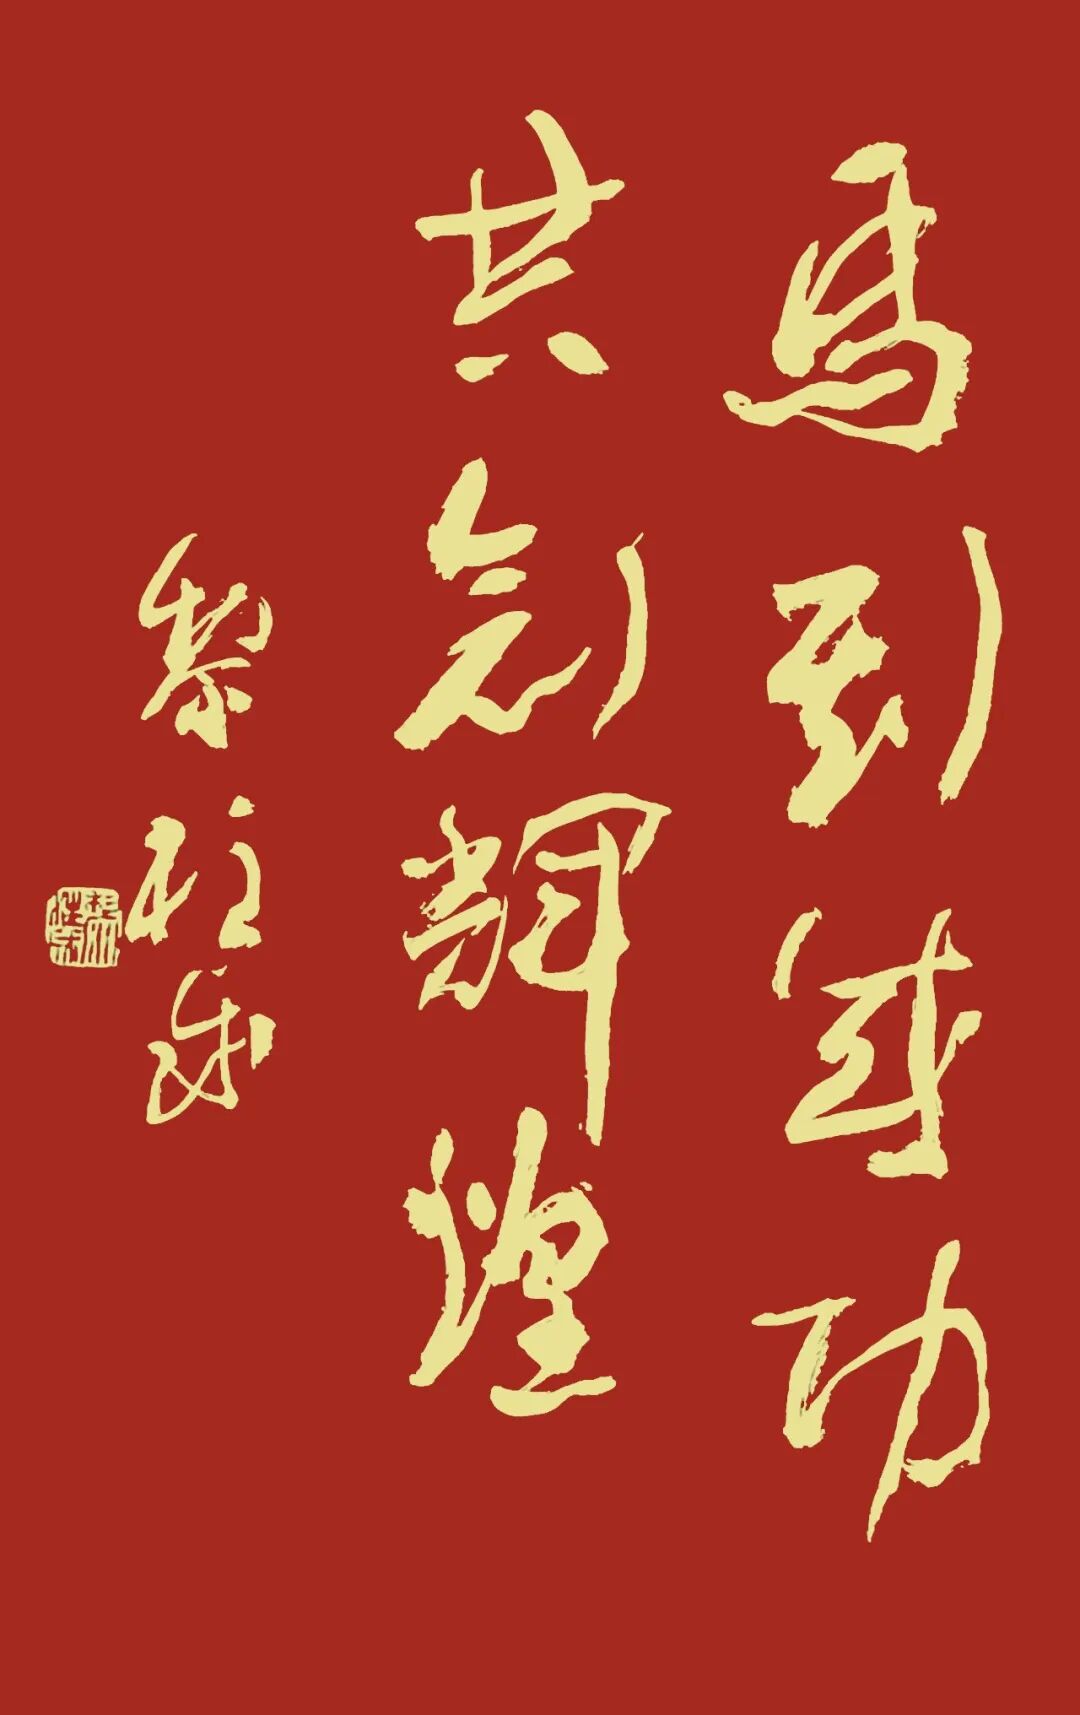 馬到成功
共創輝煌
黎柱成